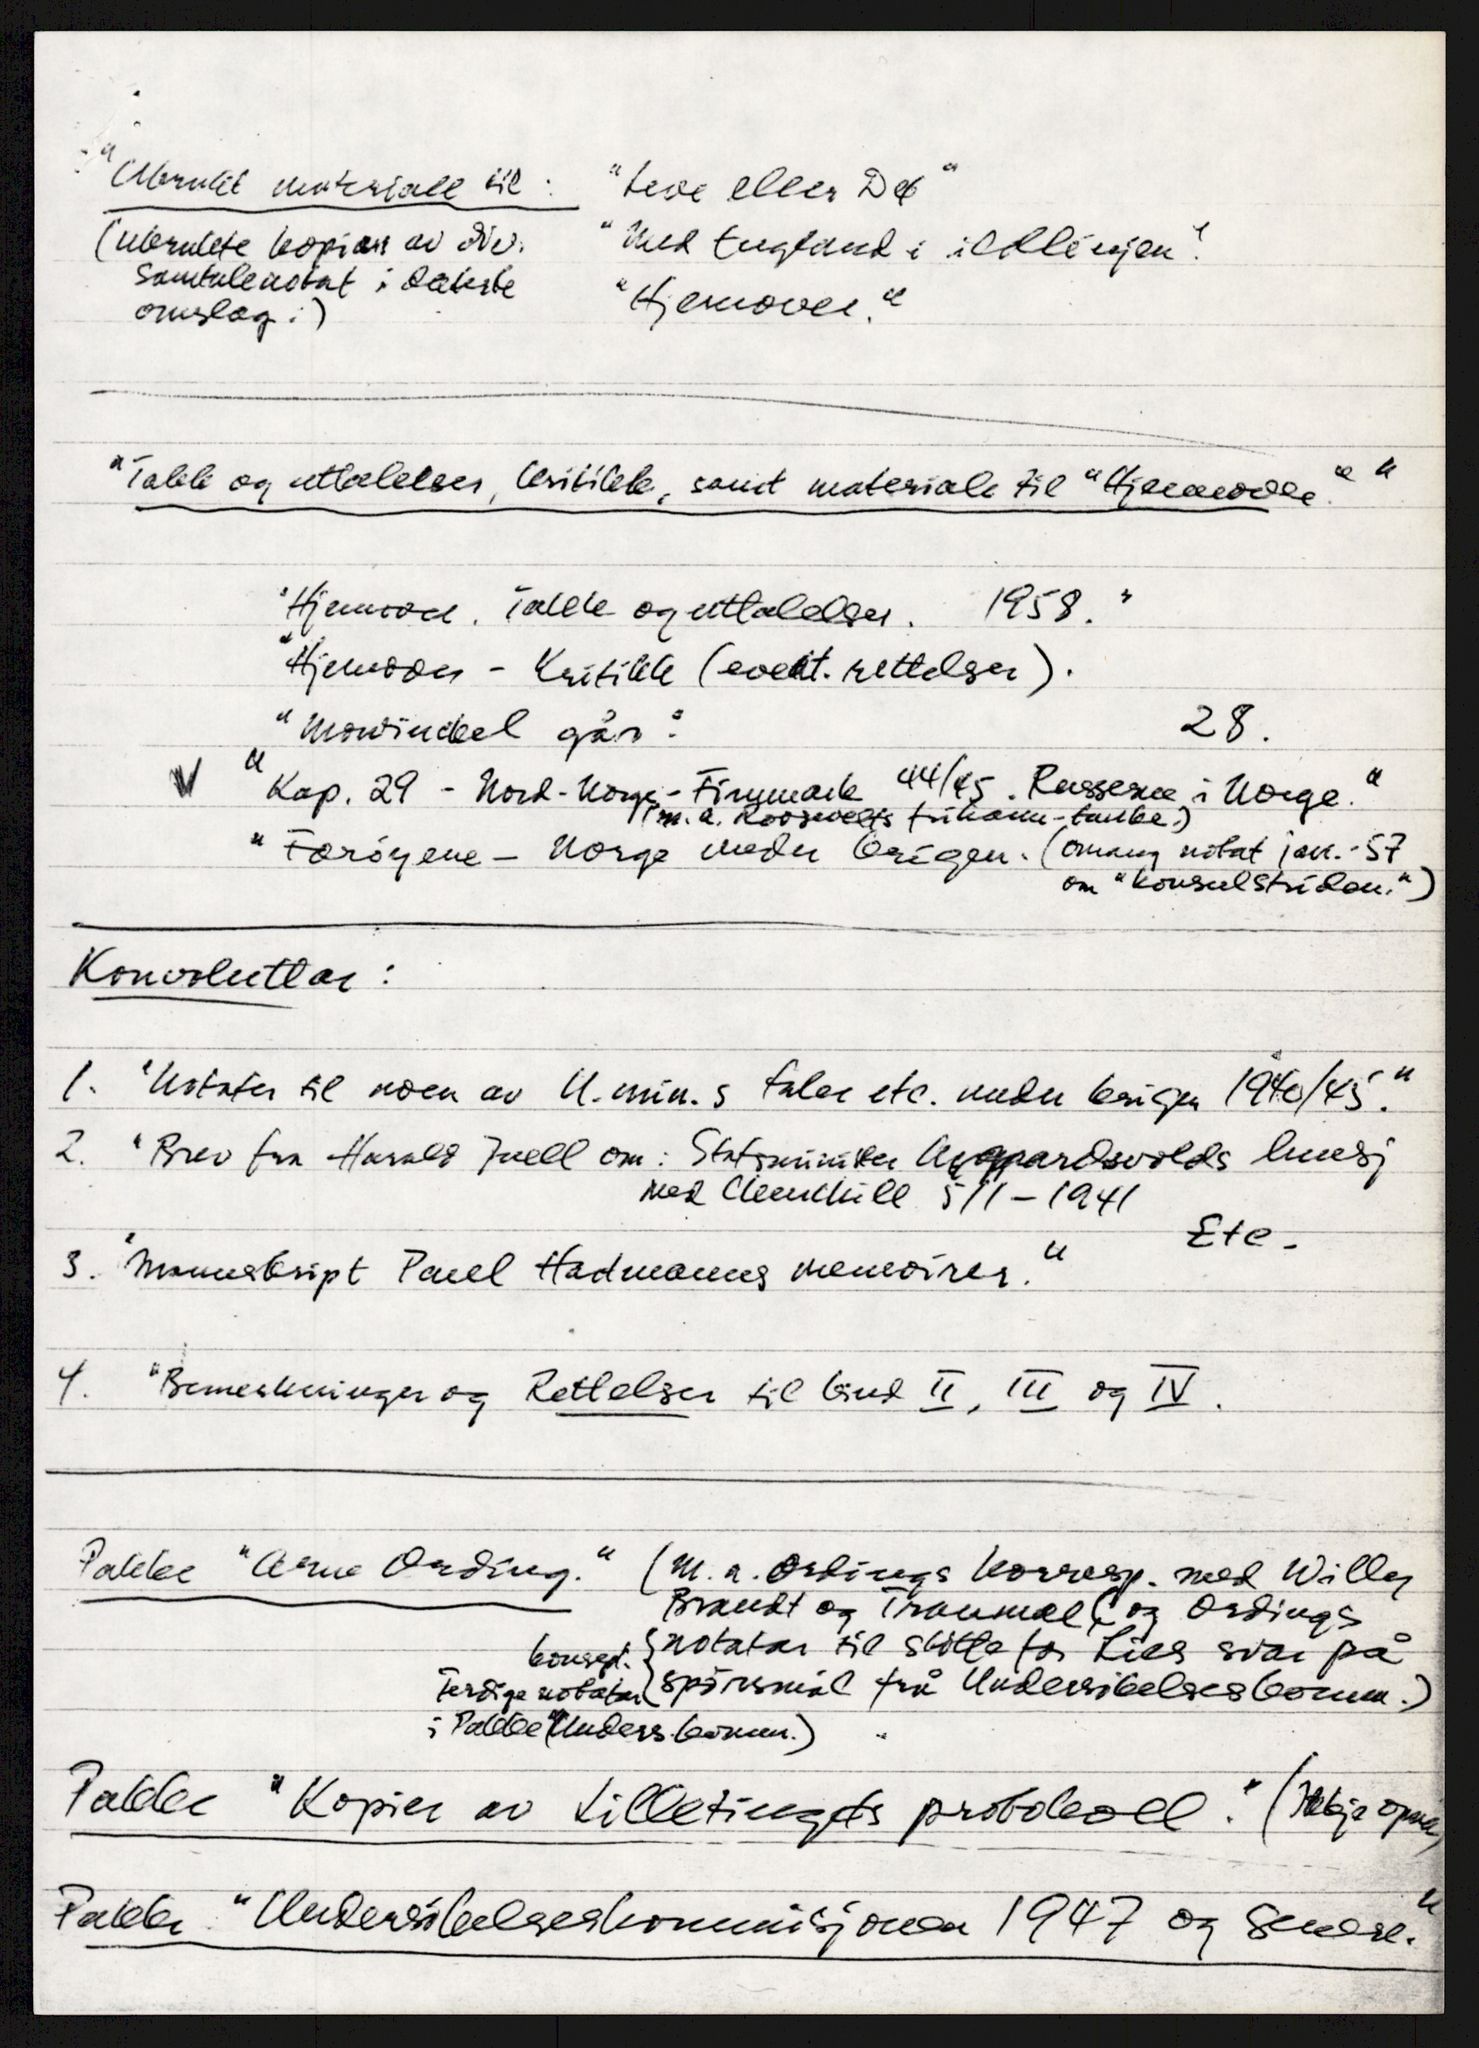 "Ubrukt materiale til: "Leve eller Dø"
(Ubrukte kopier av div. "Med England i ildlinjen".
samtalenotat i
omslag.) "Hjemover."
"Takk og uttalelser, kritikk, samt materiale til "Hjemover.""
"Hjemover. Takk og uttalelser. 1958."
"Hjemover - Kritikk (event. rettelser).
"Mowinckel går". 28.
V "Kap. 29 - Nord-Norge - Finnmark 44/45. Russerne i Norge."
(m.a. Roosevelts frihavn-tanke.)
"Færöyene - Norge under krigen. (Omang notat jan.-57
om "konsulstriden.")
Konvolutter:
1. "Notater til noen av U.min.s taler etc. under krigen 1940/45."
2. "Brev fra Harald Juell om: Statsminister Nygaardsvolds lunsj
med Churchill 5/1-1941
Etc.
3. "Manuskript Paul Hartmanns memoirer."
4. "Bemerkninger og Rettelser til bind II, III og IV.
Pakke "Arne Ording." (M.a. Ordings korresp. med Willy
Brandt og Tranmæl, og Ordings
konsept. { notater til støtte for Lies svar på
ferdige notater spörsmål frå Undersökelseskomm.)
i Pakke "Unders.komm.)
Pakke "Kopier av Lilletingets protokoll." (
Pakke "Undersökelseskommisjonen 1947 og senere."